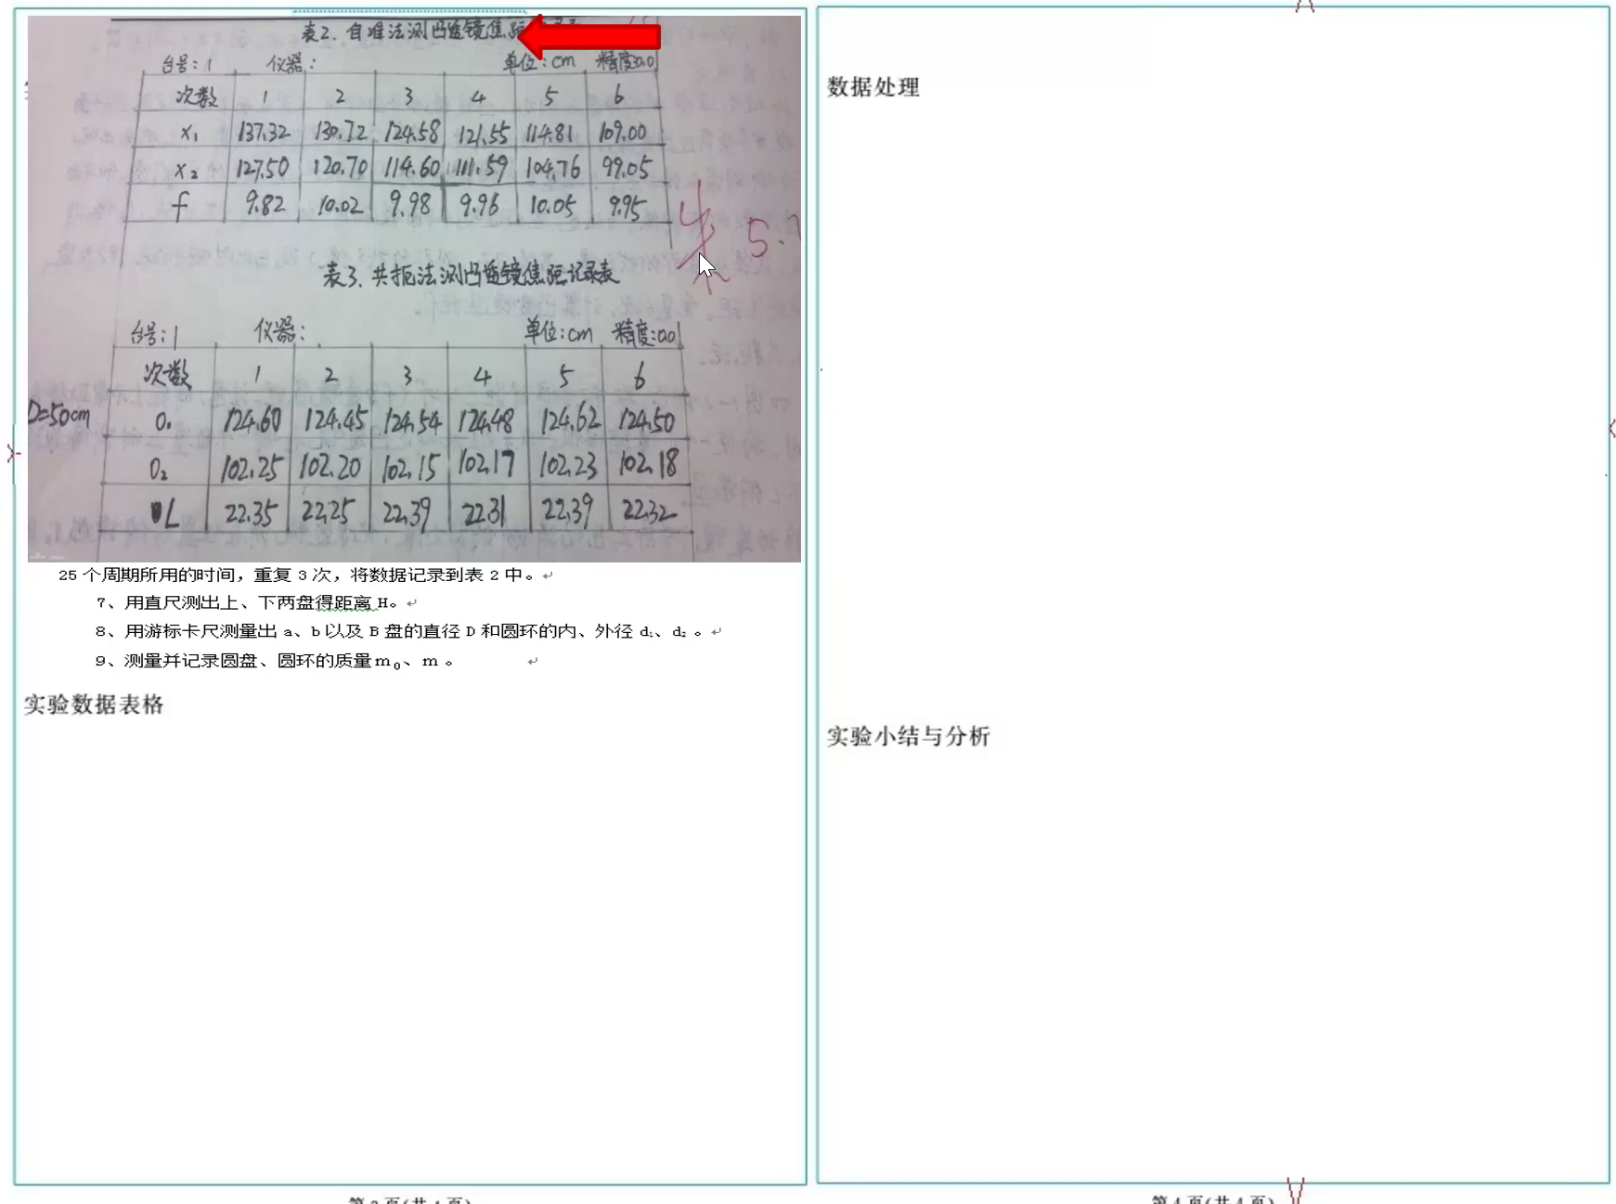 表2. 自准法测凸透镜焦距
台号: 1 仪器: 单位: cm 精度:0.01
次数 1 2 3 4 5 6
x₁ 137.32 130.72 124.58 121.55 114.81 109.00
x₂ 127.50 120.70 114.60 111.59 104.76 99.05
f 9.82 10.02 9.98 9.96 10.05 9.95
5.
表3. 共轭法测凸透镜焦距记录表
台号: 1 仪器: 单位:cm 精度:0.01
次数 1 2 3 4 5 6
D=50cm O₁ 124.60 124.45 124.54 124.48 124.62 124.50
O₂ 102.25 102.20 102.15 102.17 102.23 102.18
L 22.35 22.25 22.39 22.31 22.39 22.32
25 个周期所用的时间，重复 3 次，将数据记录到表 2 中。
7、用直尺测出上、下两盘得距离 H。
8、用游标卡尺测量出 a、b 以及 B 盘的直径 D 和圆环的内、外径 d₁、d₂ 。
9、测量并记录圆盘、圆环的质量m₀、m 。
实验数据表格
数据处理
实验小结与分析
第 4 页(共 4 页)